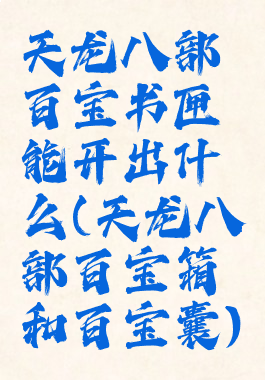 天龙八部
百宝书匣
能开出什
么(天龙八
部百宝箱
和百宝囊)